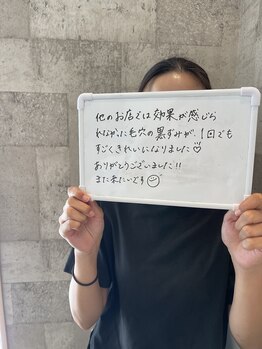 他のお店では効果が感じら
れなかった毛穴の黒ずみが、1回でも
すごくきれいになりました♡
ありがとうございました!!
また来たいです☺